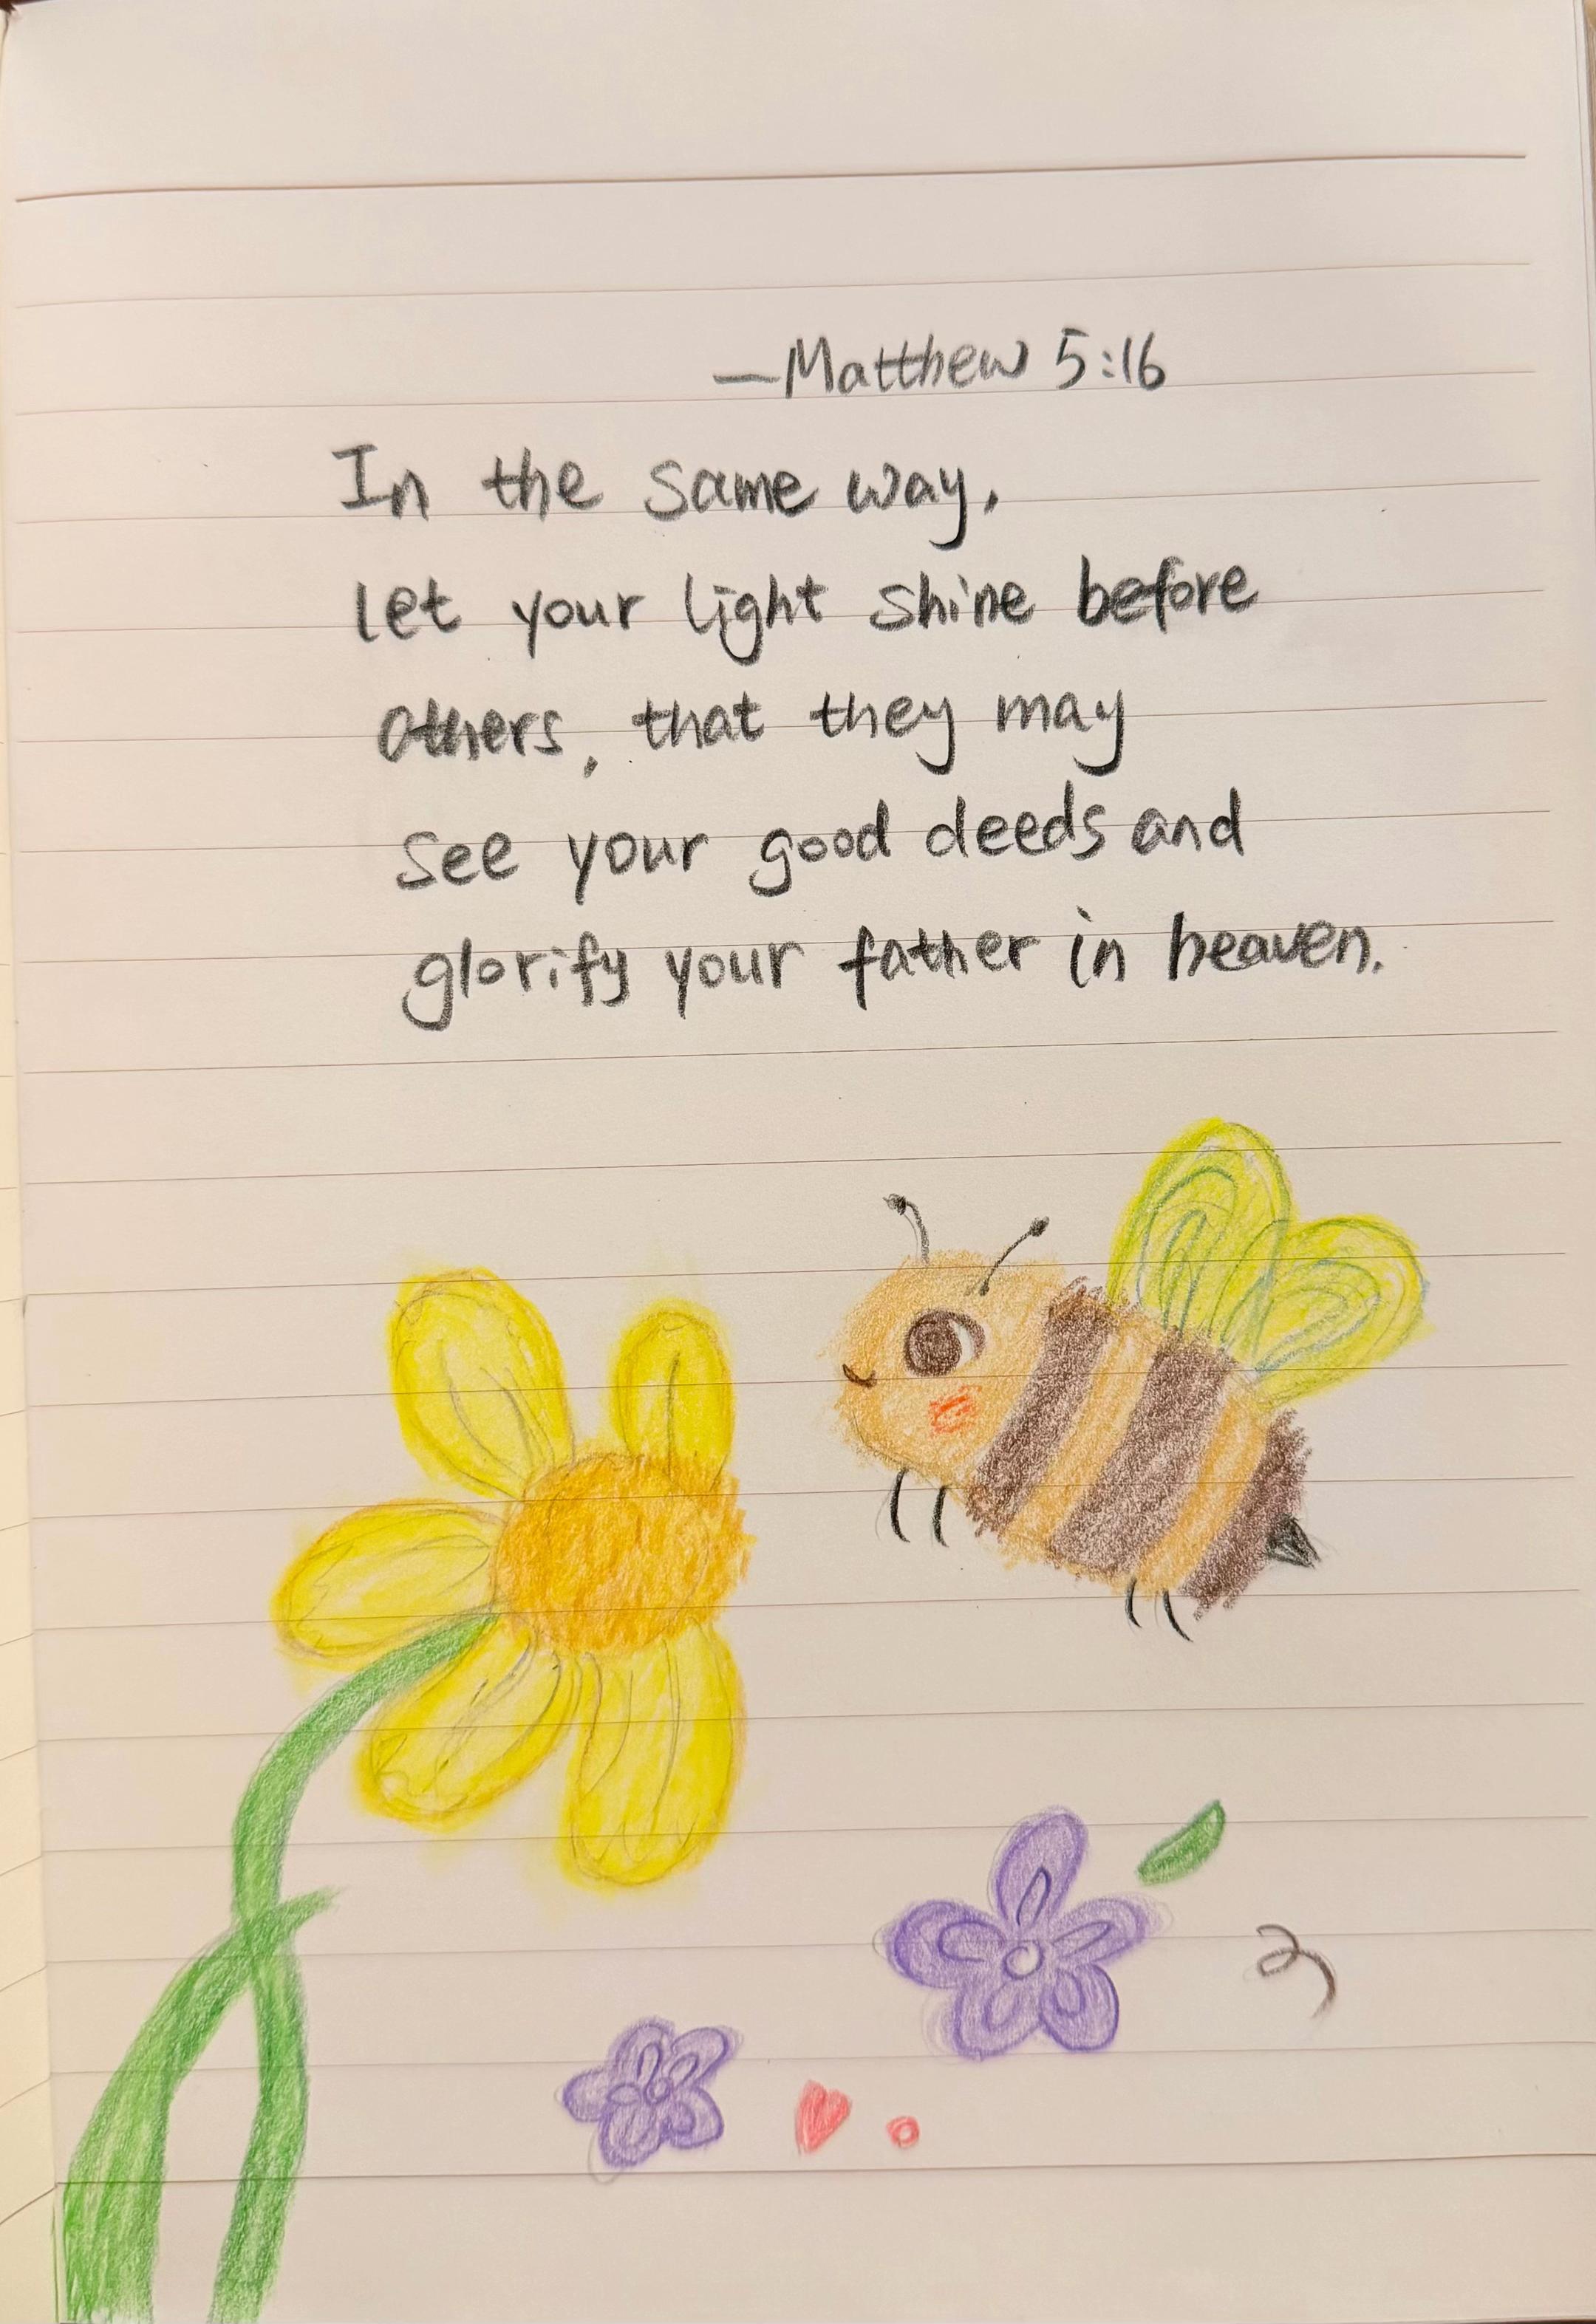 —Matthew 5:16
In the same way,
let your light shine before
others, that they may
see your good deeds and
glorify your father in heaven.